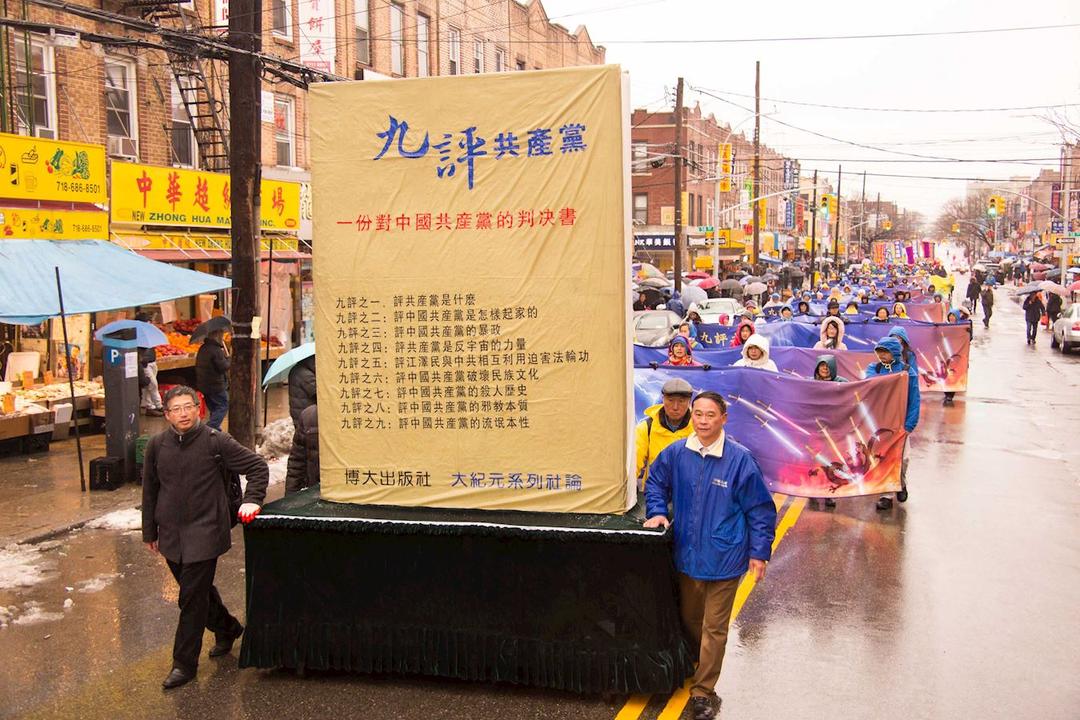 九評共產黨
一份對中國共產黨的判決書
九評之一．評共產黨是什麼
九評之二：評中國共產黨是怎樣起家的
九評之三：評中國共產黨的暴政
九評之四：評共產黨是反宇宙的力量
九評之五：評江澤民與中共相互利用迫害法輪功
九評之六：評中國共產黨破壞民族文化
九評之七：評中國共產黨的殺人歷史
九評之八：評中國共產黨的邪教本質
九評之九：評中國共產黨的流氓本性
博大出版社 大紀元系列社論
718-686-8501
718-686-8501
中華超
場
NEW ZHONG HUA MA
INC.
P
九評